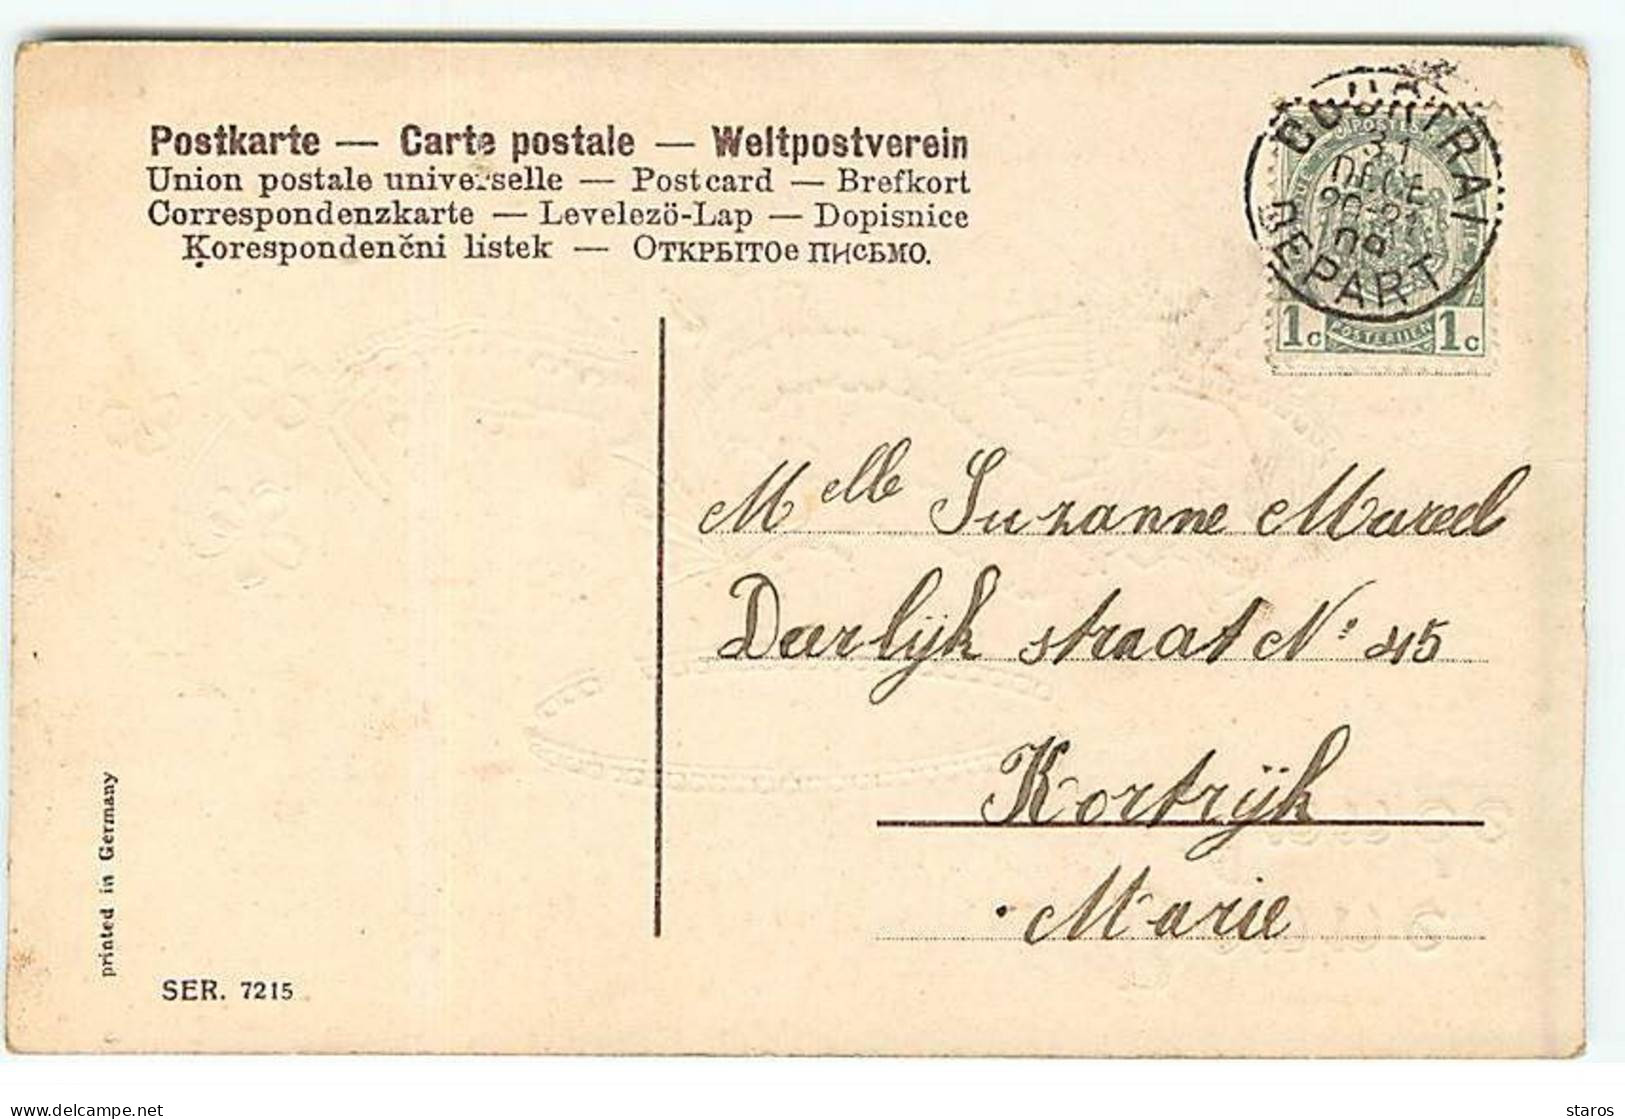 Postkarte — Carte postale — Weltpostverein
Union postale universelle — Postcard — Brefkort
Correspondenzkarte — Levelezö-Lap — Dopisnice
Korespondenčni listek — Открытое письмо.
COURTRAI
31
DECE
20-21
09
DEPART
1c POSTERIJEN 1c
Melle Suzanne Mareel
Daerlijk straat No 45
Kortrijk
Marie
printed in Germany
SER. 7215
delcampe.net
staros